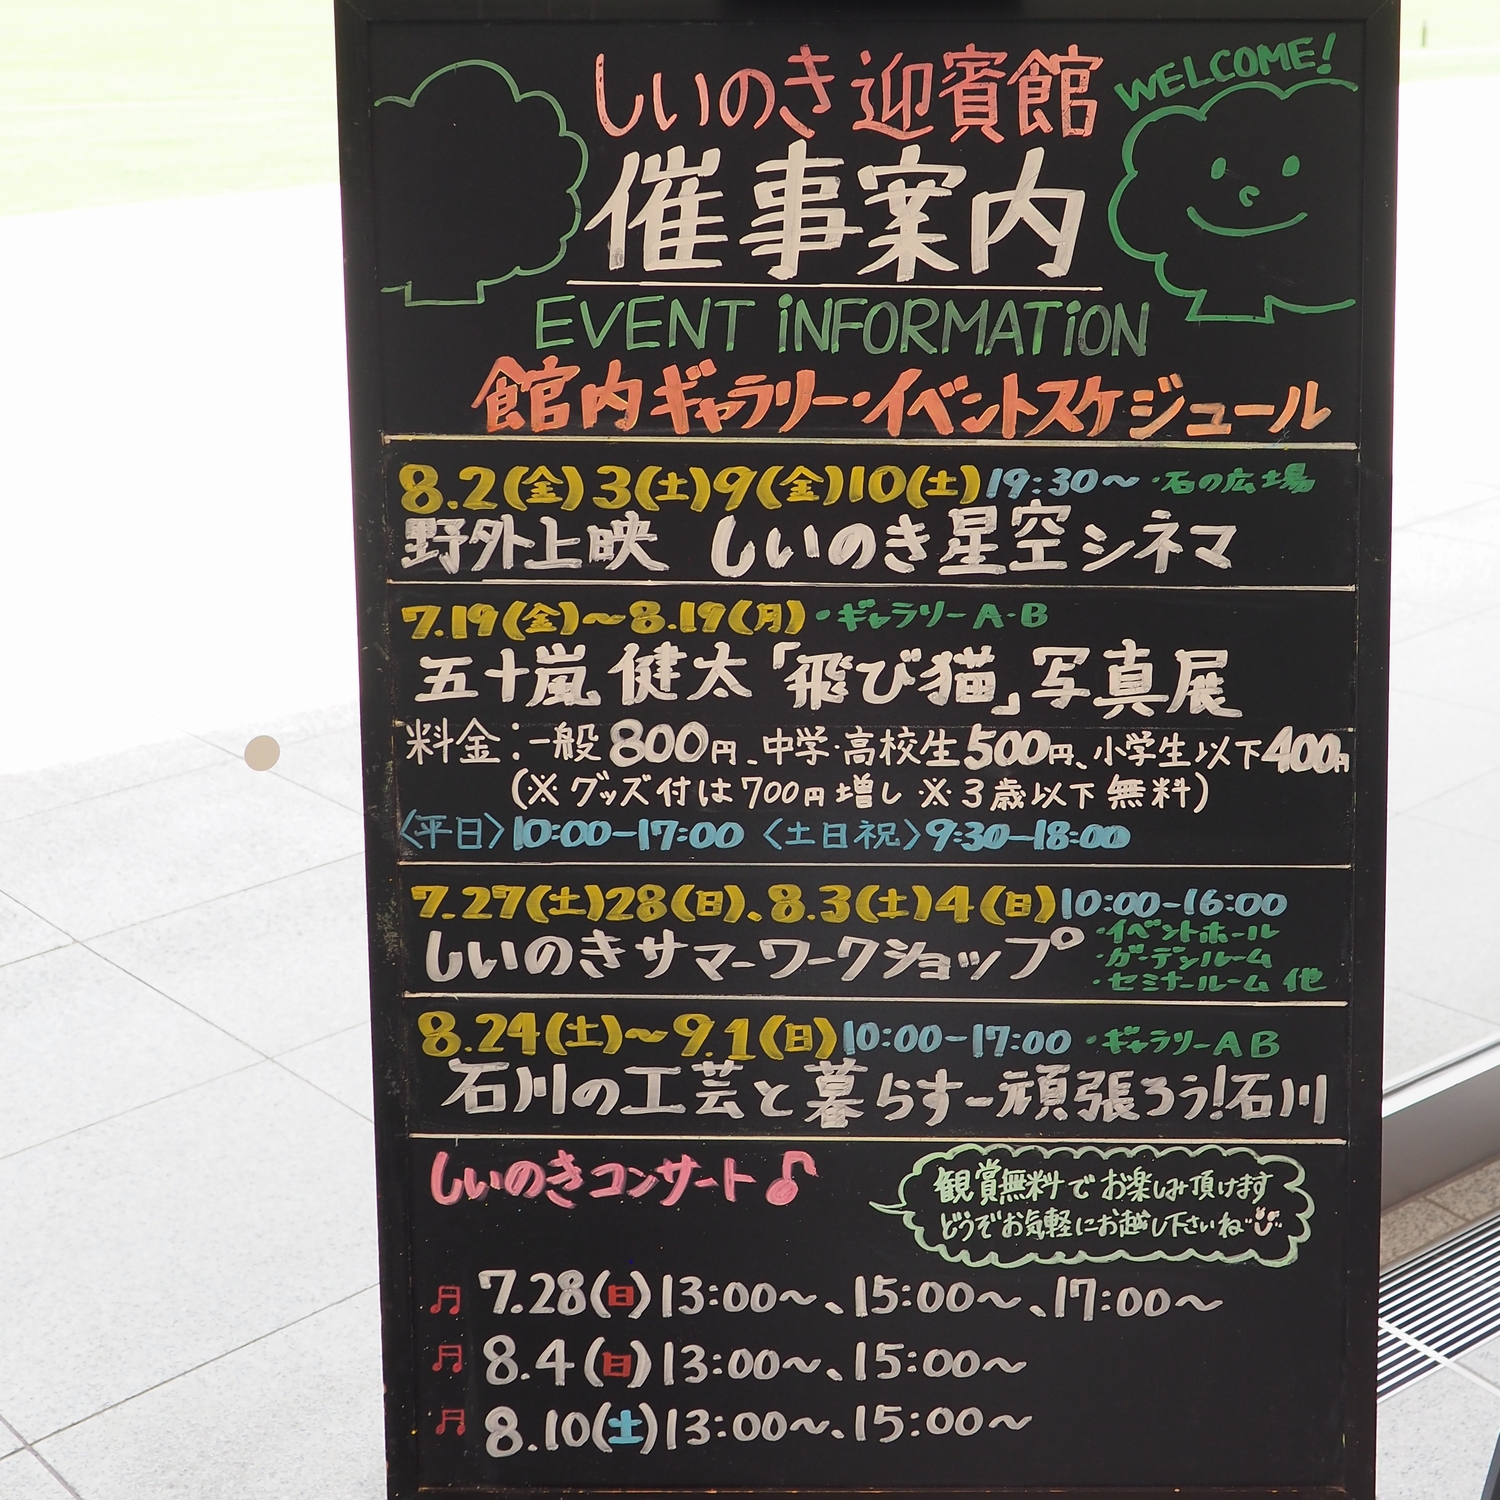 しいのき迎賓館
WELCOME!
催事案内
EVENT iNFORMATiON
館内ギャラリー・イベントスケジュール
8.2(金)3(土)9(金)10(土)19:30〜 ・石の広場
野外上映 しいのき星空シネマ
7.19(金)〜8.19(月)・ギャラリーA・B
五十嵐健太「飛び猫」写真展
料金:一般800円、中学・高校生500円、小学生以下400円
(※グッズ付は700円増し ※3歳以下無料)
〈平日〉10:00-17:00 〈土日祝〉9:30-18:00
7.27(土)28(日)、8.3(土)4(日)10:00-16:00
しいのきサマーワークショップ
・イベントホール
・ガーデンルーム
・セミナールーム 他
8.24(土)〜9.1(日)10:00-17:00 ・ギャラリーAB
石川の工芸と暮らすー頑張ろう!石川
しいのきコンサート♪
観賞無料でお楽しみ頂けます
どうぞお気軽にお越し下さいね
♬ 7.28(日)13:00〜、15:00〜、17:00〜
♬ 8.4(日)13:00〜、15:00〜
♬ 8.10(土)13:00〜、15:00〜